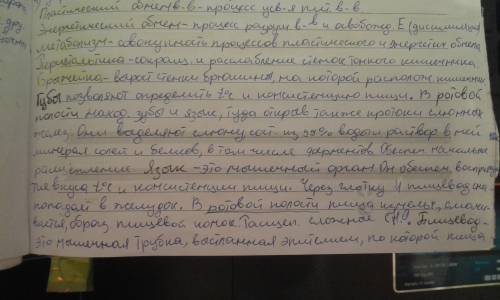 Пластический обмен в-в - процесс усв-я пит в-в
Энергетический обмен - процесс разруш в-в и авобожд. Е (диссимиляция
Метаболизм - совокупность процессов пластического и энергетич обмена
Перистальтика - сокращ. и расслабление стенок тонкого кишечника.
Брыжейка - вырост стенки брюшины, на которой располож. кишечник
Губы позволяют определить t°с и консистенцию пищи. В ротовой
полости наход. зубы и язык, туда открыв также протоки слюнных
желез. Они выделяют слюну сост из 99% воды раствор в ней
минерал солей и белков, в том числе ферментов. Обеспеч начальное
расщепление Язык - это мышечный орган Он обеспеч. воспри
тие вкуса t°с и консистенции пищи. Через глотку и пищевод она
попадает в желудок. В ротовой полости пища измельч, смачи
вается, образ. пищевой комок. сложное Пищевод-
это мышечная трубка, выстланная эпителием, по которой пища